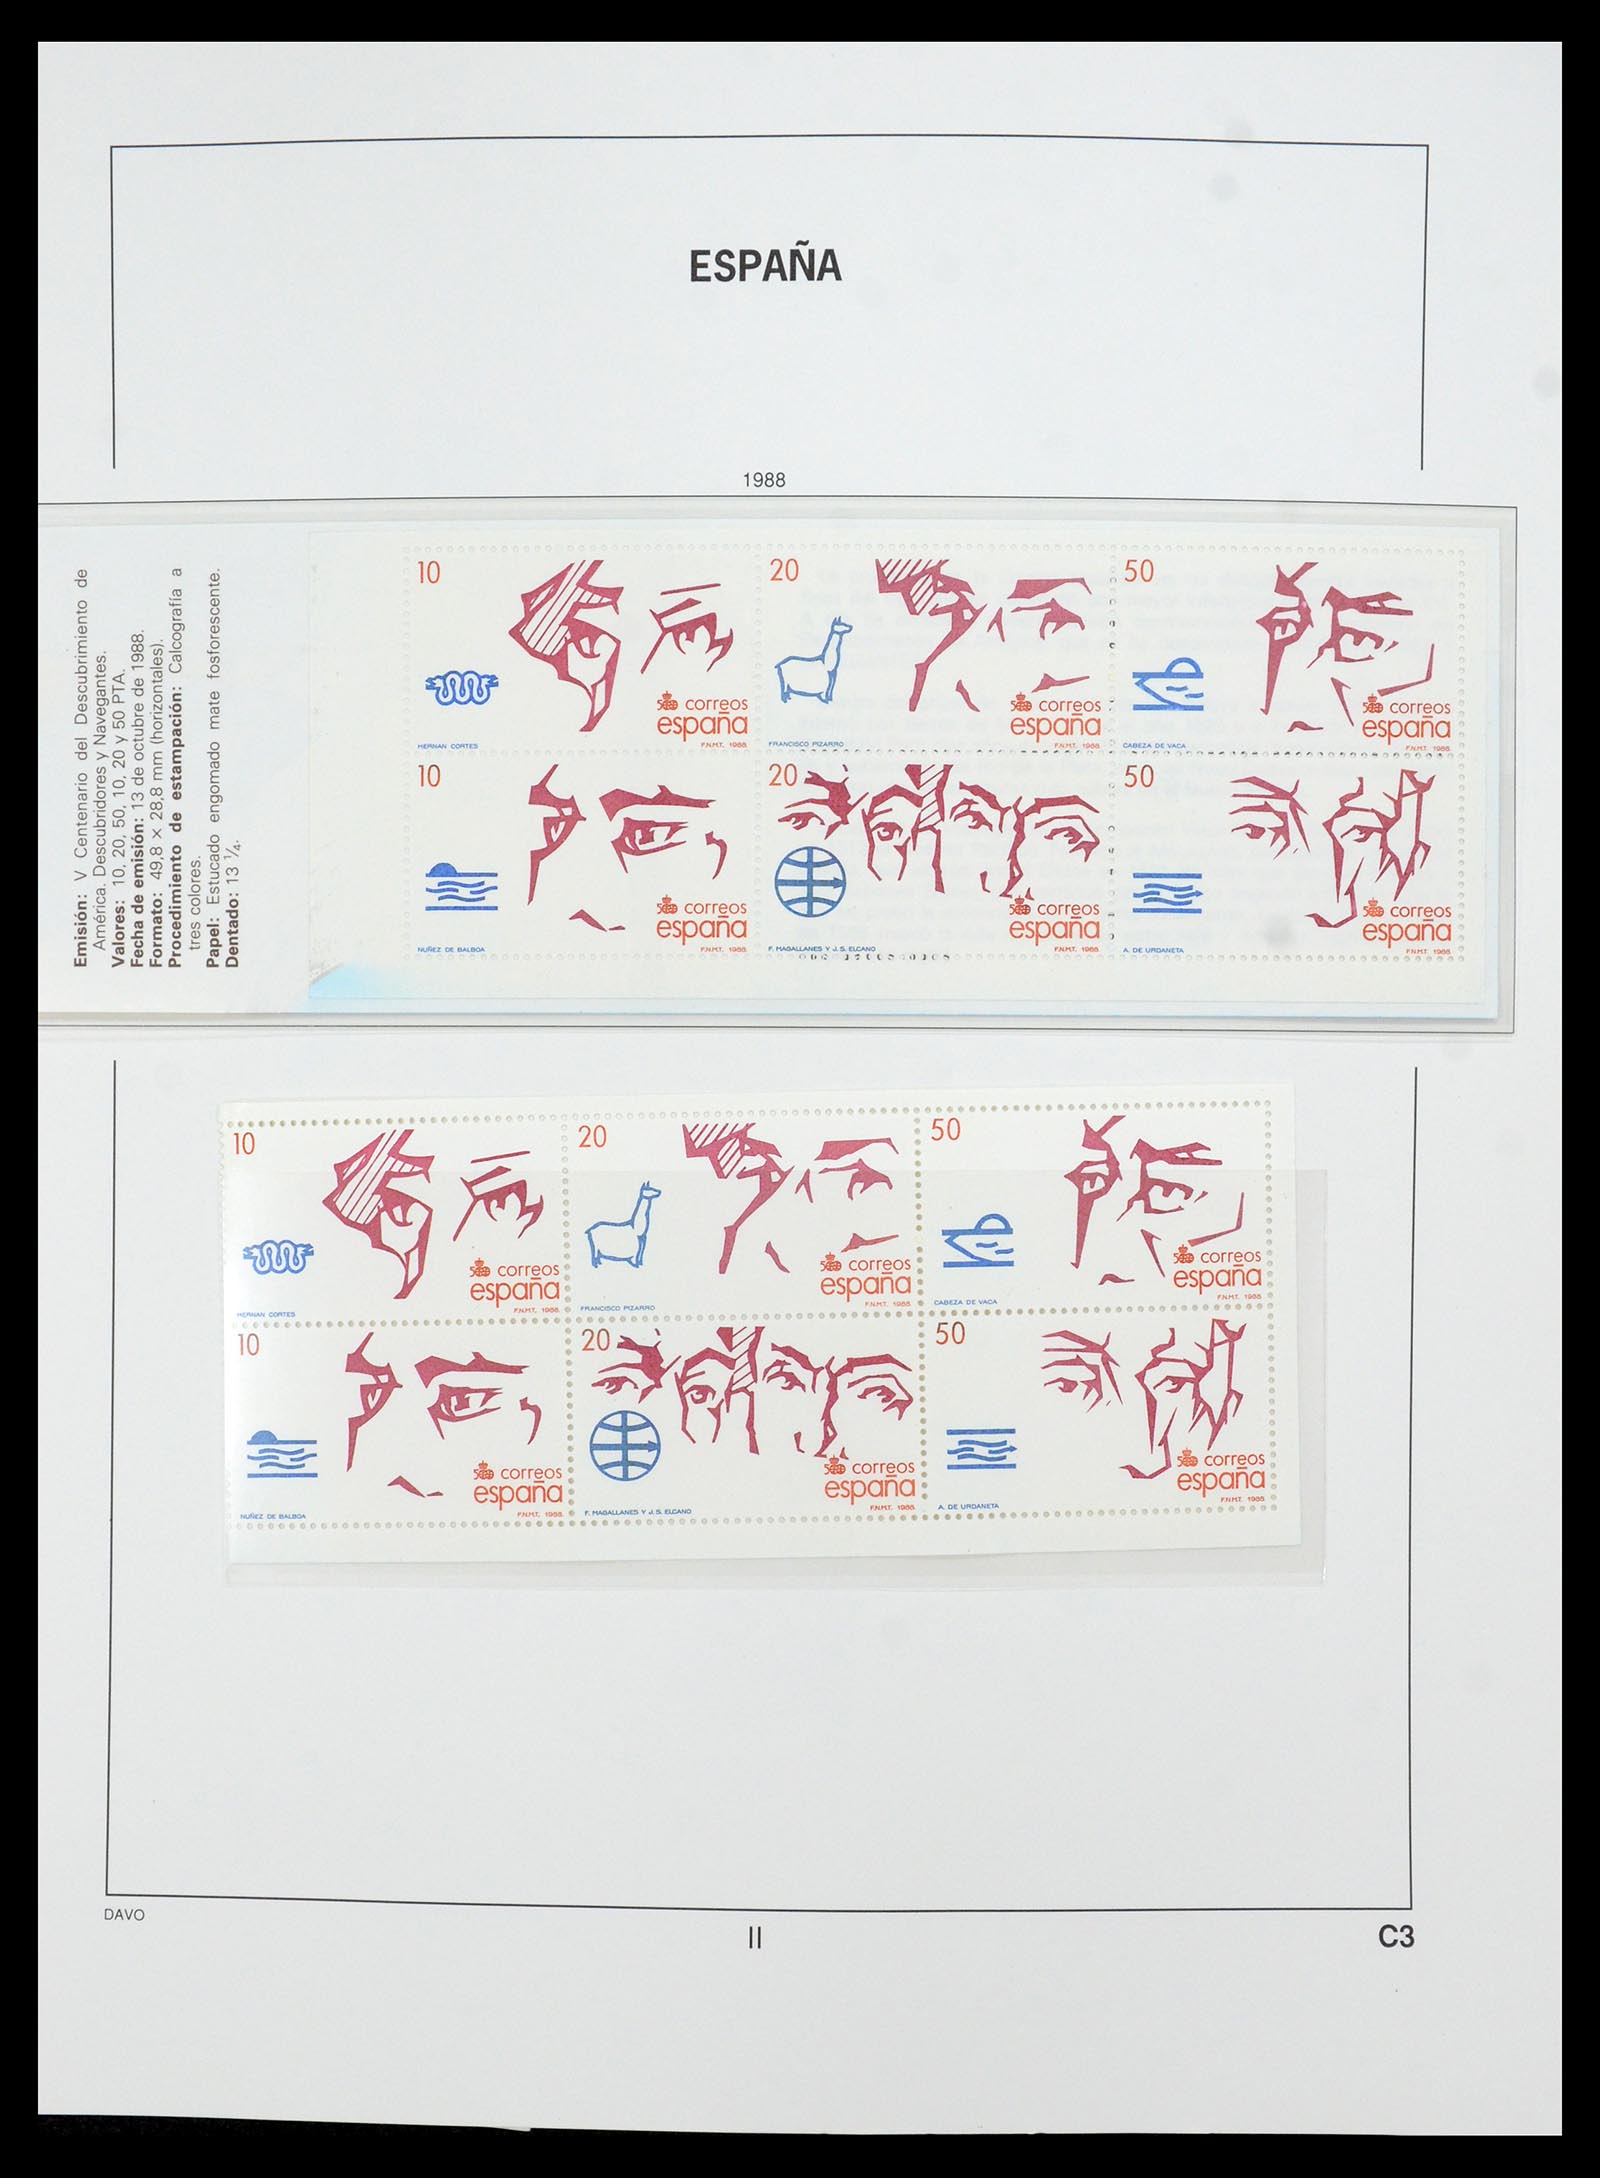 ESPAÑA
1988
Emisión: V Centenario del Descubrimiento de
América. Descubridores y Navegantes.
Valores: 10, 20, 50, 10, 20 y 50 PTA.
Fecha de emisión: 13 de octubre de 1988.
Formato: 49,8 × 28,8 mm (horizontales).
Procedimiento de estampación: Calcografía a
tres colores.
Papel: Estucado engomado mate fosforescente.
Dentado: 13 ¼.
10
correos
españa
HERNAN CORTES
F.N.M.T. 1988.
20
correos
españa
FRANCISCO PIZARRO
F.N.M.T. 1988.
50
correos
españa
CABEZA DE VACA
F.N.M.T. 1988.
10
correos
españa
NUÑEZ DE BALBOA
F.N.M.T. 1988.
20
correos
españa
F. MAGALLANES Y J. S. ELCANO
F.N.M.T. 1988.
50
correos
españa
A. DE URDANETA
F.N.M.T. 1988.
10
correos
españa
HERNAN CORTES
F.N.M.T. 1988.
20
correos
españa
FRANCISCO PIZARRO
F.N.M.T. 1988.
50
correos
españa
CABEZA DE VACA
F.N.M.T. 1988.
10
correos
españa
NUÑEZ DE BALBOA
F.N.M.T. 1988.
20
correos
españa
F. MAGALLANES Y J. S. ELCANO
F.N.M.T. 1988.
50
correos
españa
A. DE URDANETA
F.N.M.T. 1988.
DAVO
II
C3